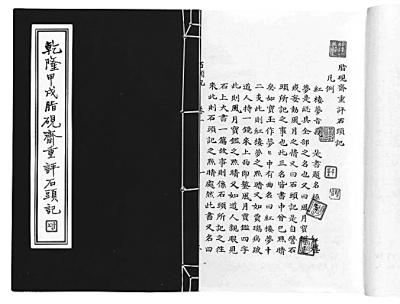 乾隆甲戌脂硯齋重評石頭記
脂硯齋重評石頭記
凡例
紅樓夢旨義 是書題名
夢是總其全部之名也又曰風月寶
戒妄動風月之情又曰石頭記是自譬石
頭所記之事也此三名皆書中曾已點睛
矣如寶玉作夢夢中有曲名曰紅樓夢十
二支此則紅樓夢之點睛又如賈瑞病跛
道人持一鏡來上面即鏨風月寶鑑四字
此則風月寶鑑之點睛又如道人親眼見
石上大書一篇故事則係石頭所記之往
來此則石頭記之點睛處然此書又名曰